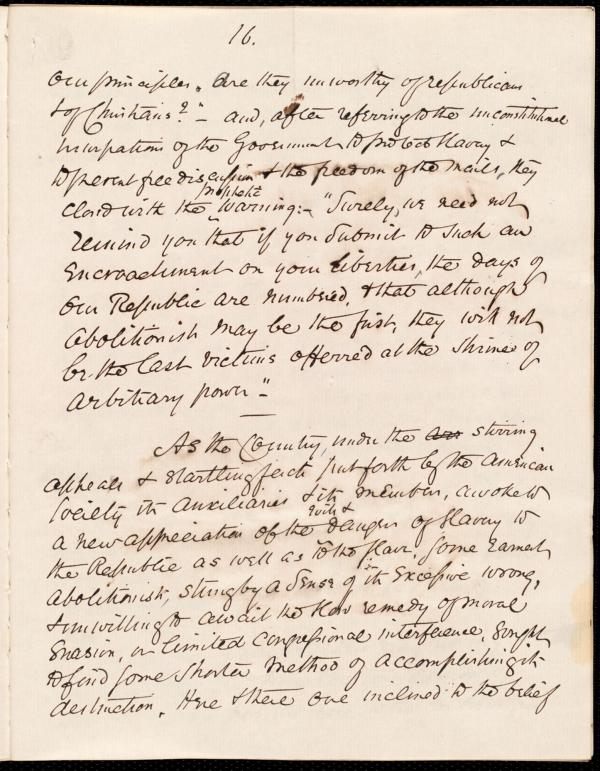 16.
our principles. Are they unworthy of republicans
& of Christians?" – and, after referring to the unconstitutional
usurpations of the Government to protect slavery &
to prevent free discussion & the freedom of the mails, they
prophetic
close with the warning:– "Surely, we need not
remind you that if you submit to such an
encroachment on your liberties, the days of
our Republic are numbered, & that although
abolitionists may be the first, they will not
be the last victims offerred at the shrine of
arbitrary power".
As the Country, under the stirring
appeals & startling facts put forth by the American
Society its auxiliaries & its members, awoke to
evils &
a new appreciation of the dangers of slavery to
the Republic as well as to the slave, some earnest
abolitionists, stung by a sense of its excessive wrong,
& unwilling to await the slow remedy of moral
suasion, or limited congressional interference, sought
to find some shorter method of accomplishing its
destruction. Here & there one inclined to the belief